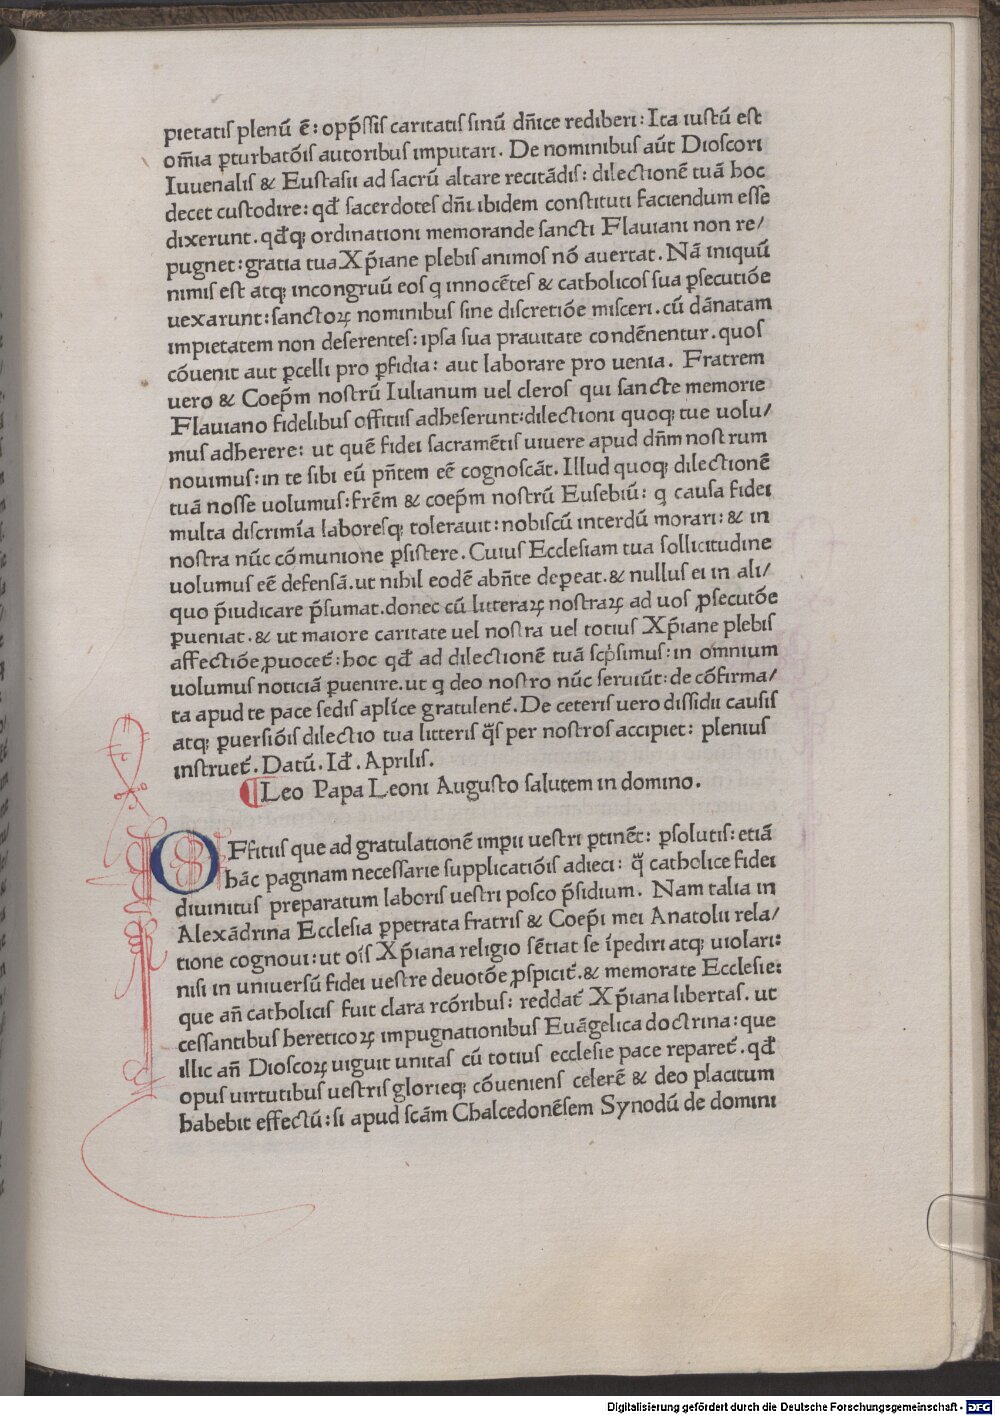 pietatis plenū ē: opp̄ssis caritatis sinū dn̄ice rediberi: Ita iustū est
om̄ia ꝑturbatōis autoribus imputari. De nominibus aūt Dioscori
Iuuenalis & Eustasii ad sacrū altare recitādis: dilectionē tuā hoc
decet custodire: qd̄ sacerdotes dn̄i ibidem constituti faciendum esse
dixerunt. qd̄qꝫ ordinationi memorande sancti Flauiani non re/
pugnet: gratia tua Xp̄iane plebis animos nō auertat. Nā iniquū
nimis est atqꝫ incongruū eos q innocētes & catholicos sua ꝑsecutiōe
uexarunt: sanctoꝝ nominibus sine discretiōe misceri. cū dānatam
impietatem non deserentes: ipsa sua prauitate condēnentur. quos
cōuenit aut ꝑcelli pro ꝑfidia: aut laborare pro uenia. Fratrem
uero & Coep̄m nostrū Iulianum uel cleros qui sancte memorie
Flauiano fidelibus offitiis adheserunt: dilectioni quoqꝫ tue uolu/
mus adherere: ut quē fidei sacramētis uiuere apud dn̄m nostrum
nouimus: in te sibi eū pn̄tem eē cognoscāt. Illud quoqꝫ dilectionē
tuā nosse uolumus: frēm & coep̄m nostrū Eusebiū: q causa fidei
multa discrimīa laboresqꝫ tolerauit: nobiscū interdū morari: & in
nostra nūc cōmunione ꝑsistere. Cuius Ecclesiam tua sollicitudine
uolumus eē defensā. ut nihil eodē abn̄te depereat. & nullus ei in ali/
quo p̄iudicare p̄sumat. donec cū litteraꝝ nostraꝝ ad uos ꝓsecutōe
ꝑueniat. & ut maiore caritate uel nostra uel totius Xp̄iane plebis
affectiōe ꝓuocet᷑: hoc qd̄ ad dilectionē tuā scp̄simus: in omnium
uolumus noticiā ꝑuenire. ut q deo nostro nūc seruiūt: de cōfirma/
ta apud te pace sedis aplīce gratulent᷑. De ceteris uero dissidii causis
atqꝫ ꝑuersiōis dilectio tua litteris q̄s per nostros accipiet: plenius
instruet᷑. Datū. Id̄. Aprilis.
Leo Papa Leoni Augusto salutem in domino.
OFfitiis que ad gratulationē impii uestri ꝑtinēt: ꝑsolutis: etiā
hāc paginam necessarie supplicatiōis adieci: q̄ catholice fidei
diuinitus preparatum laboris uestri posco p̄sidium. Nam talia in
Alexādrina Ecclesia ꝑpetrata fratris & Coep̄i mei Anatolii rela/
tione cognoui: ut oīs Xp̄iana religio sētiat se īpediri atqꝫ uiolari:
nisi in uniuersū fidei uestre deuotōe ꝓspicit᷑. & memorate Ecclesie:
que an̄ catholicis fuit clara rcōribus: reddat᷑ Xp̄iana libertas. ut
cessantibus hereticoꝝ impugnationibus Euāgelica doctrina: que
illic an̄ Dioscoꝝ uiguit unitas cū totius ecclesie pace reparet᷑. qd̄
opus uirtutibus uestris glorieqꝫ cōueniens celerē & deo placitum
habebit effectū: si apud scām Chalcedonēsem Synodū de domini
Digitalisierung gefördert durch die Deutsche Forschungsgemeinschaft - DFG